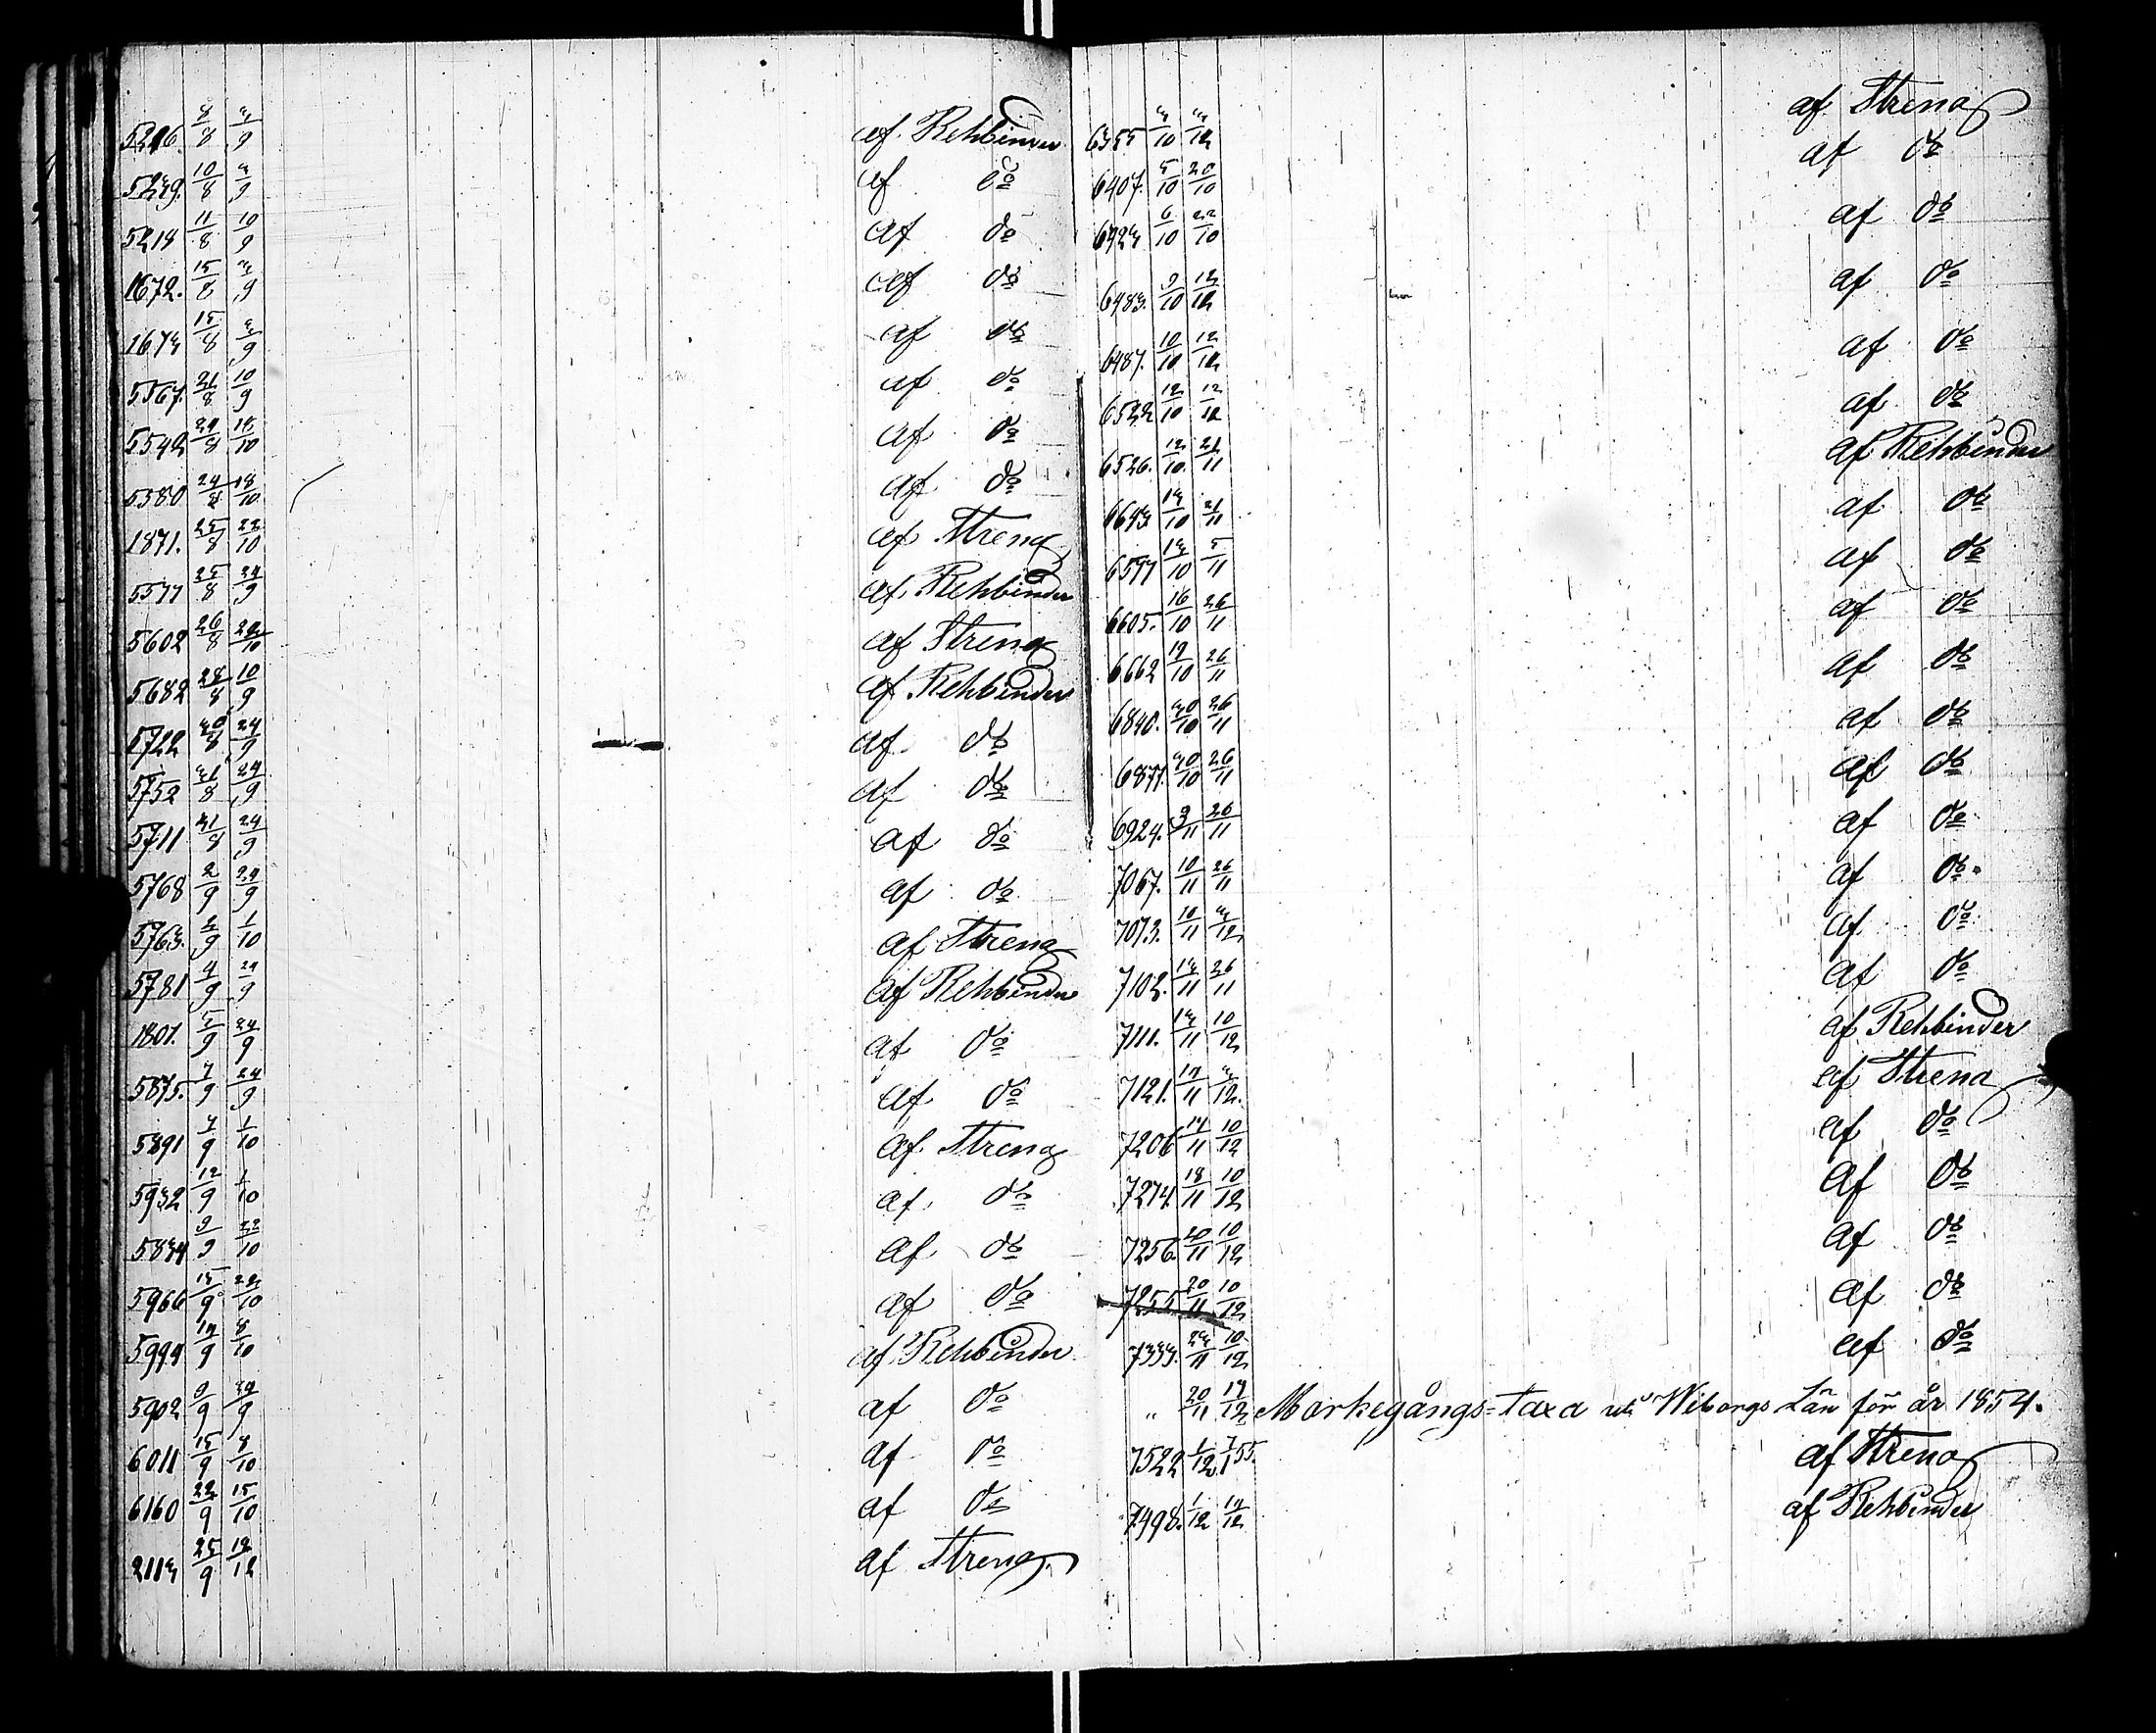 5216. 8/8 3/9 af Rehbinder
5239. 10/8 3/9 af do
5214 11/8 10/9 af do
1672. 15/8 3/9 af do
1673 15/8 3/9 af do
5567. 21/8 10/9 af do
5542 24/8 18/10 af do
5580 24/8 18/10 af do
1871. 25/8 22/10 af Streng
5577 25/8 24/9 af Rehbinder
5602 26/8 22/10 af Streng
5682 28/8 10/9 af Rehbinder
5722 30/8 24/9 af do
5752 31/8 24/9 af do
5711 31/8 24/9 af do
5768 2/9 24/9 af do
5763. 2/9 1/10 af Streng
5781 4/9 24/9 af Rehbinder
1801. 5/9 24/9 af do
5875. 7/9 24/9 af do
5891 7/9 1/10 af Streng
5932 12/9 1/10 af do
5834 9/9 22/10 af do
5966 15/9 22/10 af do
5999 14/9 8/10 af Rehbinder
5902 9/9 24/9 af do
6011 15/9 8/10 af do
6160 22/9 15/10 af do
2113 25/9 12/12 af Streng
6355 3/10 3/12 af Streng
6407. 5/10 20/10 af do
6423 6/10 22/10 af do
6483. 9/10 12/12 af do
6487. 10/10 12/12 af do
6522 12/10 12/12 af do
6526. 12/10 21/11 af Rehbinder
6643 13/10 21/11 af do
6577 13/10 5/11 af do
6605. 16/10 26/11 af do
6662 19/10 26/11 af do
6840. 30/10 26/11 af do
6877. 30/10 26/11 af do
6924. 9/11 26/11 af do
7067. 10/11 26/11 af do
7073. 10/11 3/12 af do
7102. 13/11 26/11 af do
7111. 13/11 10/12 af Rehbinder
7121. 14/11 3/12 af Streng
7206 14/11 10/12 af do
7274. 18/11 10/12 af do
7256. 20/11 10/12 af do
7255 20/11 10/12 af do
7333. 23/11 10/12 af do
" 20/11 14/12 Markegångs=taxa uti Wiborgs Län för år 1854.
7522 1/12 7/1 55. af Streng
7498. 1/12 14/12 af Rehbinder